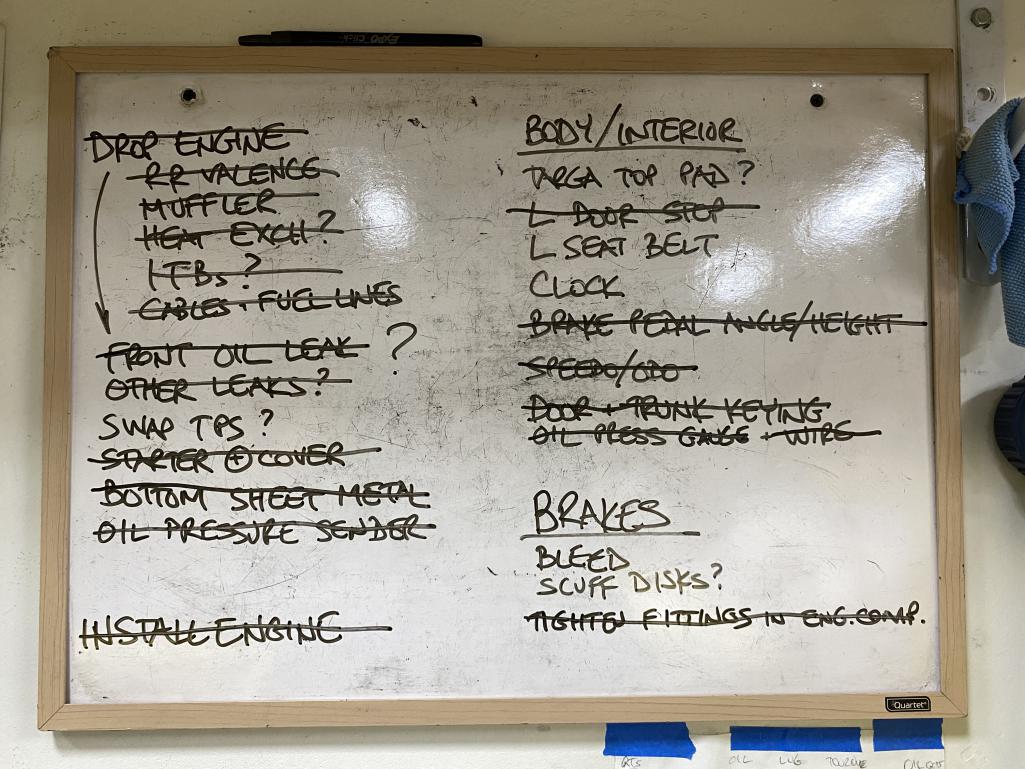 EXPO Click
DROP ENGINE
RR VALENCE
MUFFLER
HEAT EXCH?
ITBs?
CABLES + FUEL LINES
FRONT OIL LEAK ?
OTHER LEAKS?
SWAP TPS?
STARTER + COVER
BOTTOM SHEET METAL
OIL PRESSURE SENDER
INSTALL ENGINE
BODY/INTERIOR
TARGA TOP PAD?
L DOOR STOP
L SEAT BELT
CLOCK
BRAKE PEDAL ANGLE/HEIGHT
SPEEDO/ODO
DOOR + TRUNK KEYING
OIL PRESS GAUGE + WIRE
BRAKES
BLEED
SCUFF DISKS?
TIGHTEN FITTINGS IN ENG. COMP.
Quartet
OIL LUG TORQUE